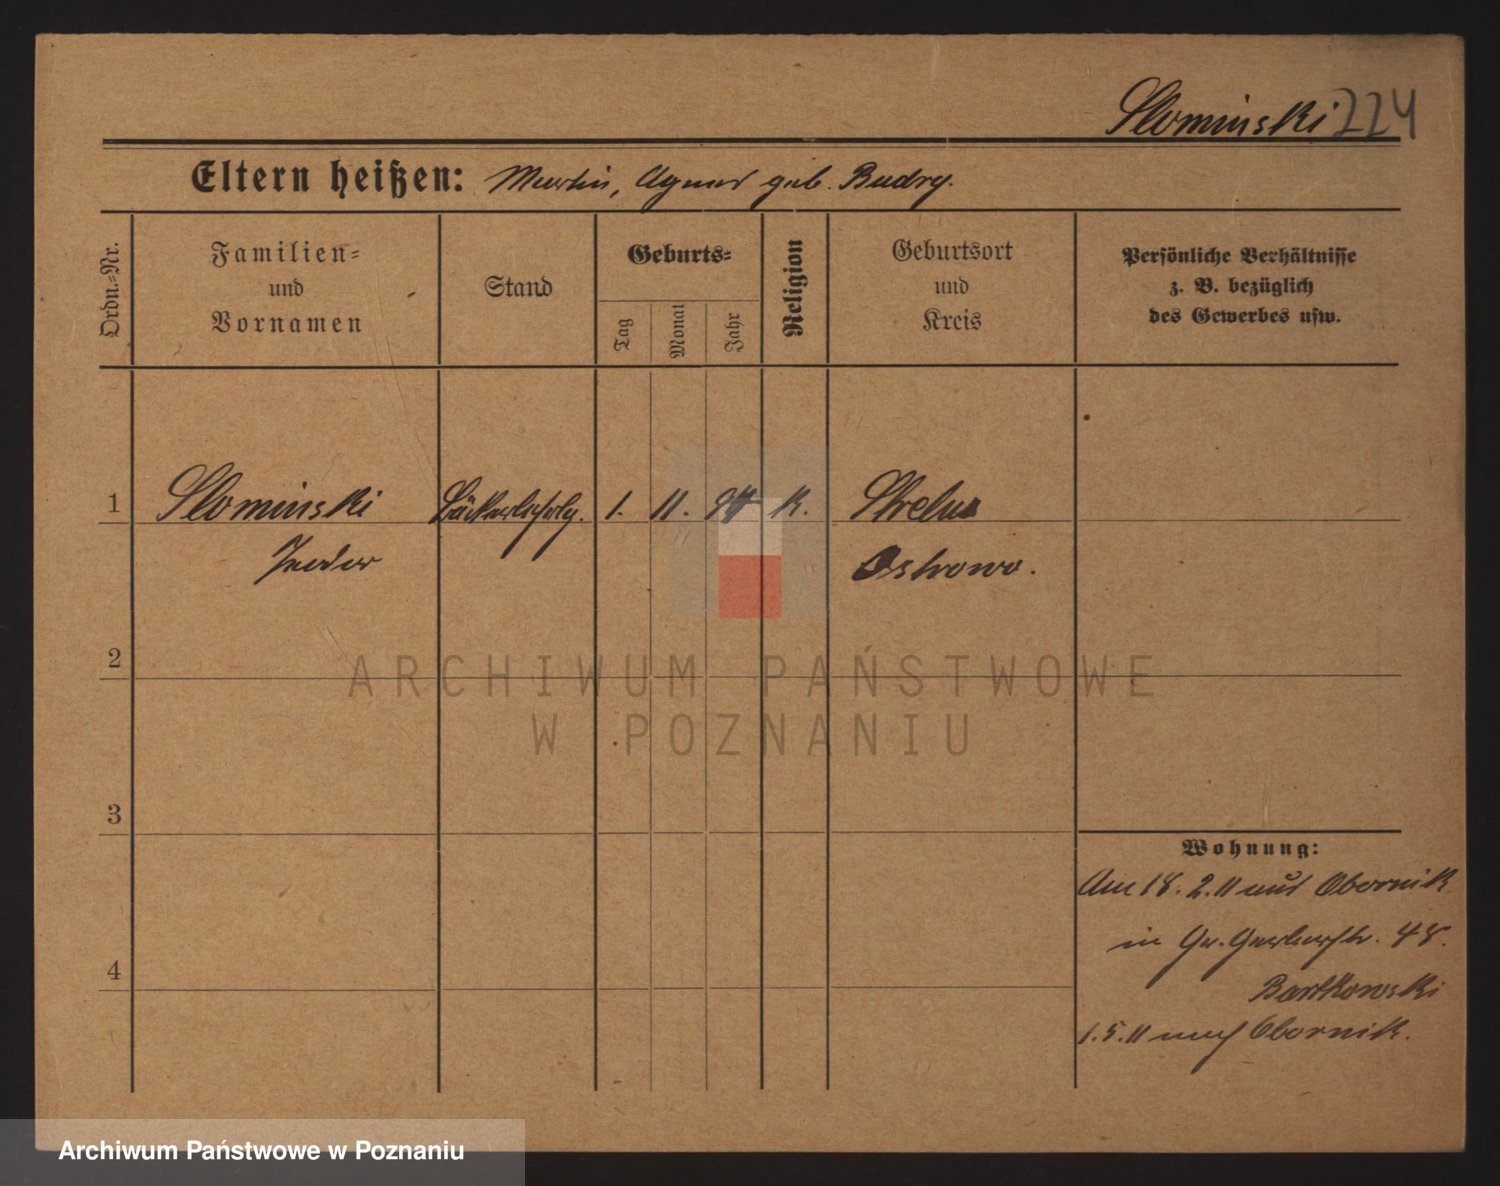 Slominski 224
Eltern heißen: Martin, Agnes geb. Budry.
Ordn.=Nr.
Familien=
und
Vornamen
Stand
Geburts=
Tag
Monat
Jahr
Religion
Geburtsort
und
Kreis
Persönliche Verhältnisse
z. B. bezüglich
des Gewerbes usw.
1 Slominski 1. 11. K.
Teodor Ostrowo.
2
ARCHIWUM PAŃSTWOWE
W POZNANIU
3
Wohnung:
Am 18. 2. 11 aus Obornik
in Gr. Gerberstr. 48.
4
Bartkowski
1. 5. 11 nach Obornik.
Archiwum Państwowe w Poznaniu